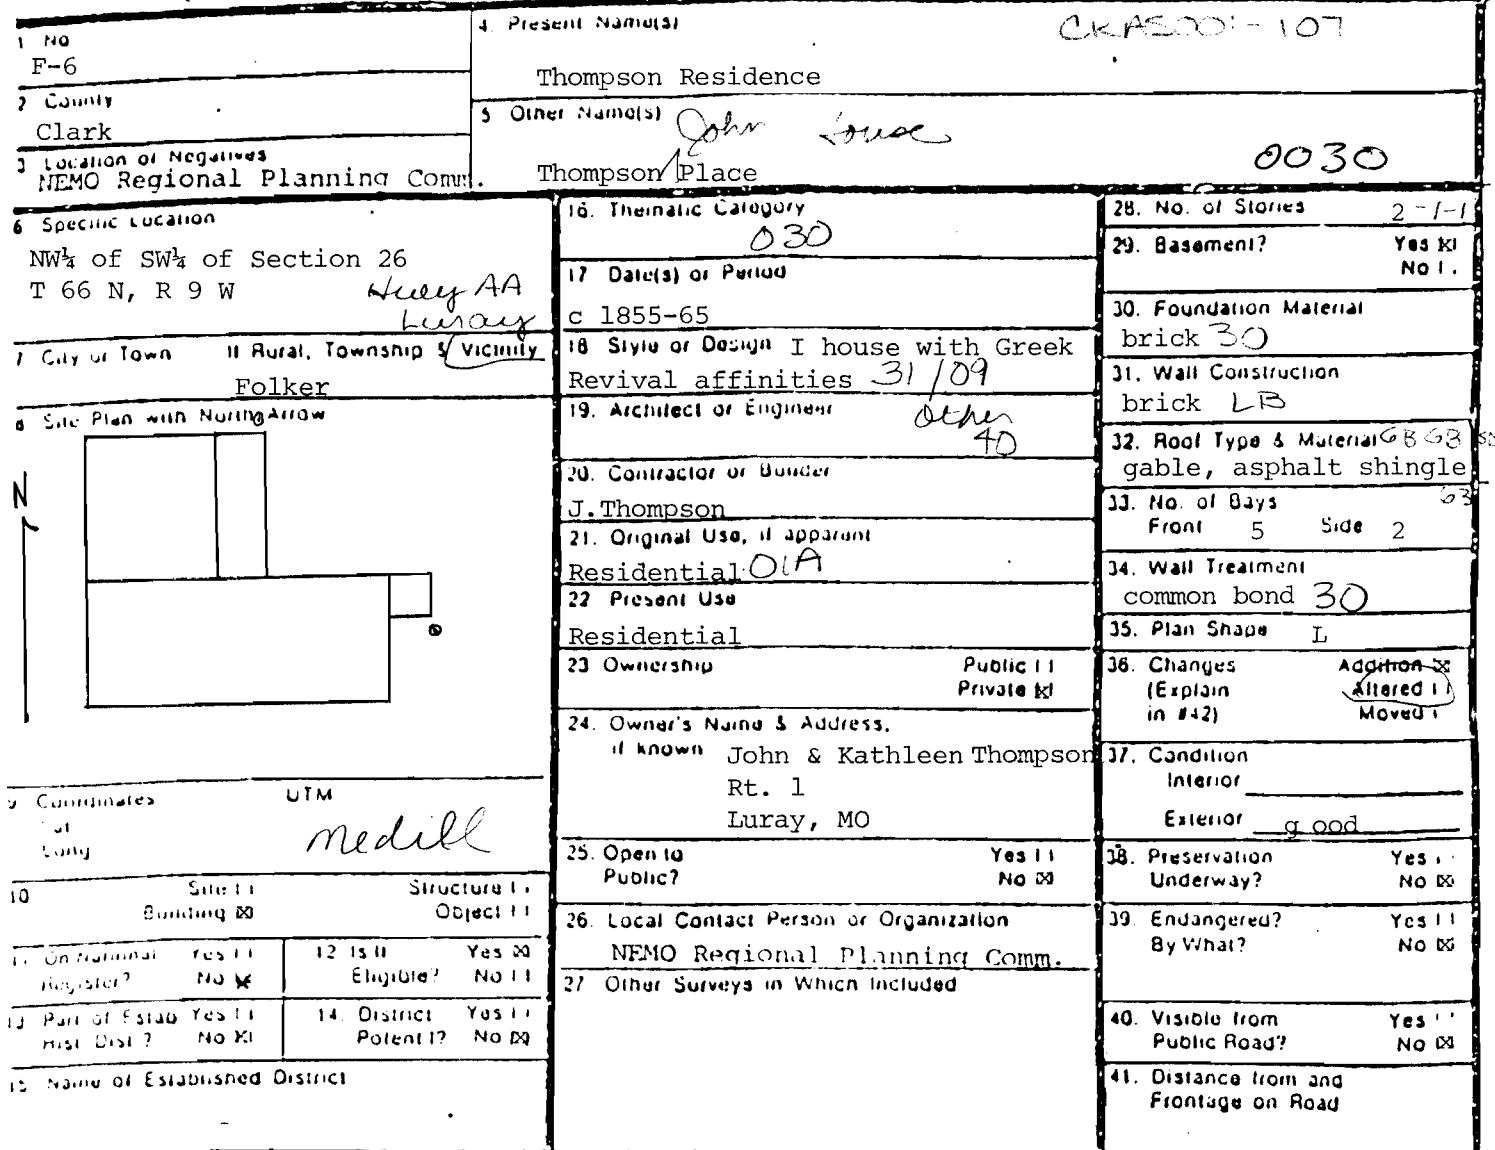 1 No
F-6
2 County
Clark
3 Location of Negatives
NEMO Regional Planning Comm.
4. Present Name(s)
CKAS001-107
Thompson Residence
5 Other Name(s)
John House
Thompson/Place
0030
6 Specific Location
NW¼ of SW¼ of Section 26
T 66 N, R 9 W
Hwy AA
Luray
7 City or Town If Rural, Township & Vicinity
Folker
8 Site Plan with North Arrow
N
9 Coordinates UTM
Lat
Long
Medill
10 Site Structure
Building ☒ Object
11 On National Register? Yes No ☒
12 Is It Eligible? Yes ☒ No
13 Part of Estab Hist Dist? Yes No ☒
14. District Potent'l? Yes No ☒
15 Name of Established District
16. Thematic Category
030
17 Date(s) or Period
c 1855-65
18 Style or Design I house with Greek
Revival affinities 31/09
19. Architect or Engineer
Other
40
20. Contractor or Builder
J.Thompson
21. Original Use, if apparent
Residential 01A
22 Present Use
Residential
23 Ownership Public
Private ☒
24. Owner's Name & Address,
if known
John & Kathleen Thompson
Rt. 1
Luray, MO
25. Open to Yes
Public? No ☒
26. Local Contact Person or Organization
NEMO Regional Planning Comm.
27 Other Surveys in Which Included
28. No. of Stories 2-1-1
29. Basement? Yes ☒
No
30. Foundation Material
brick 30
31. Wall Construction
brick LB
32. Roof Type & Material GB GB
gable, asphalt shingle
63
33. No. of Bays
Front 5 Side 2
34. Wall Treatment
common bond 30
35. Plan Shape L
36. Changes Addition ☒
(Explain Altered
in #42) Moved
37. Condition
Interior
Exterior good
38. Preservation Yes
Underway? No ☒
39. Endangered? Yes
By What? No ☒
40. Visible from Yes
Public Road? No ☒
41. Distance from and
Frontage on Road